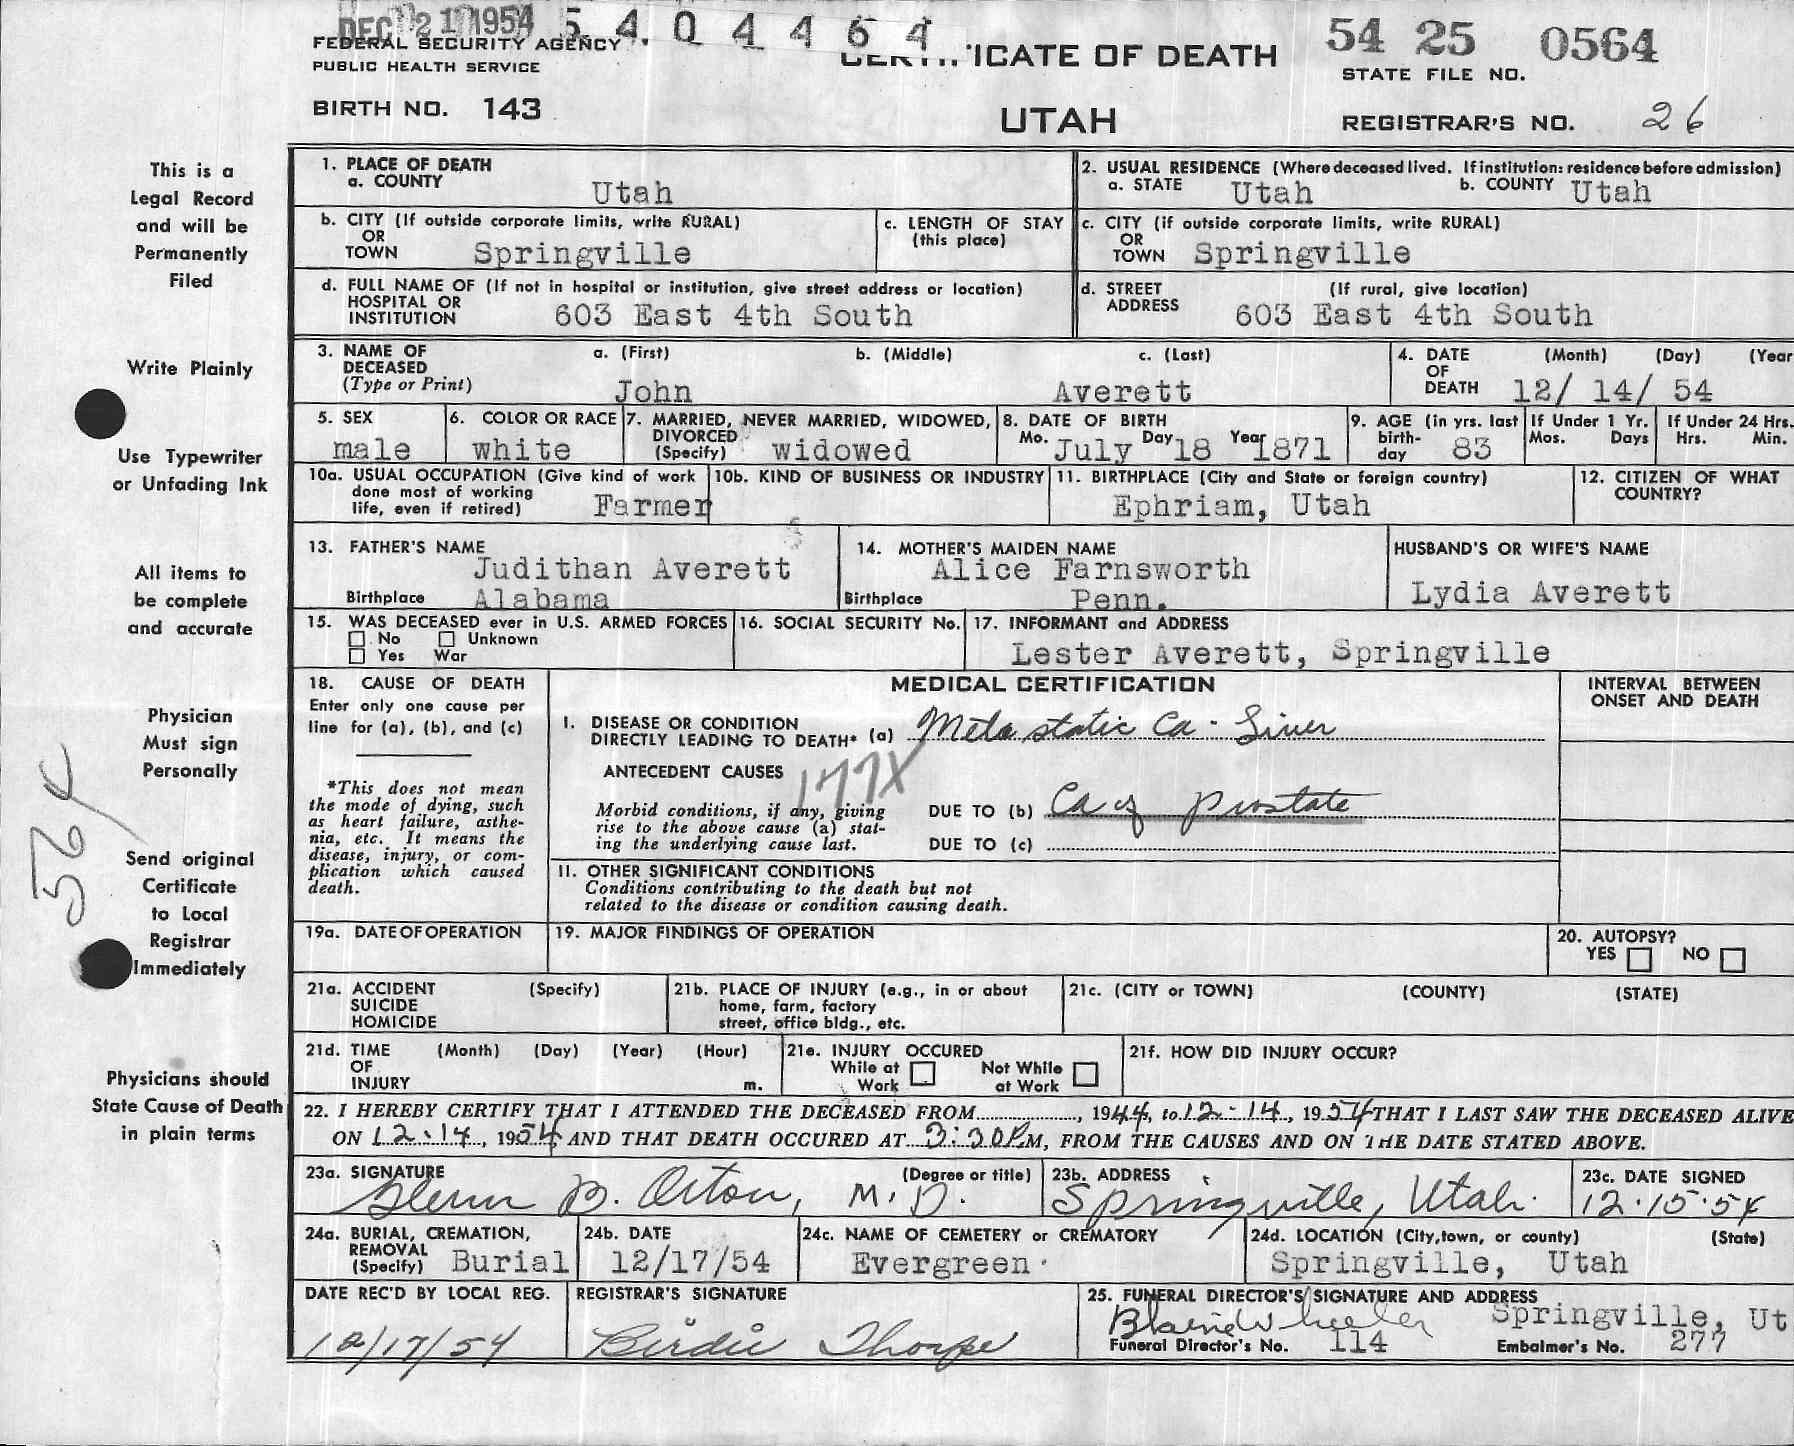 DEC 21 1954 5404464 54 25 0564
FEDERAL SECURITY AGENCY
PUBLIC HEALTH SERVICE
CERTIFICATE OF DEATH
STATE FILE NO.
BIRTH NO. 143
UTAH
REGISTRAR'S NO. 26
This is a
Legal Record
and will be
Permanently
Filed
Write Plainly
Use Typewriter
or Unfading Ink
All items to
be complete
and accurate
Physician
Must sign
Personally
Send original
Certificate
to Local
Registrar
Immediately
Physicians should
State Cause of Death
in plain terms
1. PLACE OF DEATH
a. COUNTY Utah
2. USUAL RESIDENCE (Where deceased lived. If institution: residence before admission)
a. STATE Utah b. COUNTY Utah
b. CITY (If outside corporate limits, write RURAL)
OR
TOWN Springville
c. LENGTH OF STAY
(this place)
c. CITY (if outside corporate limits, write RURAL)
OR
TOWN Springville
d. FULL NAME OF (If not in hospital or institution, give street address or location)
HOSPITAL OR
INSTITUTION 603 East 4th South
d. STREET (If rural, give location)
ADDRESS 603 East 4th South
3. NAME OF a. (First) b. (Middle) c. (Last)
DECEASED
(Type or Print) John Averett
4. DATE (Month) (Day) (Year
OF
DEATH 12/ 14/ 54
5. SEX
male
6. COLOR OR RACE
white
7. MARRIED, NEVER MARRIED, WIDOWED,
DIVORCED
(Specify) widowed
8. DATE OF BIRTH
Mo. July Day 18 Year 1871
9. AGE (in yrs. last
birth-
day 83
If Under 1 Yr.
Mos. Days
If Under 24 Hrs.
Hrs. Min.
10a. USUAL OCCUPATION (Give kind of work
done most of working
life, even if retired) Farmer
10b. KIND OF BUSINESS OR INDUSTRY
11. BIRTHPLACE (City and State or foreign country)
Ephriam, Utah
12. CITIZEN OF WHAT
COUNTRY?
13. FATHER'S NAME
Judithan Averett
Birthplace Alabama
14. MOTHER'S MAIDEN NAME
Alice Farnsworth
Birthplace Penn.
HUSBAND'S OR WIFE'S NAME
Lydia Averett
15. WAS DECEASED ever in U.S. ARMED FORCES
No Unknown
Yes War
16. SOCIAL SECURITY No.
17. INFORMANT and ADDRESS
Lester Averett, Springville
18. CAUSE OF DEATH
Enter only one cause per
line for (a), (b), and (c)
*This does not mean
the mode of dying, such
as heart failure, asthe-
nia, etc. It means the
disease, injury, or com-
plication which caused
death.
MEDICAL CERTIFICATION
INTERVAL BETWEEN
ONSET AND DEATH
I. DISEASE OR CONDITION
DIRECTLY LEADING TO DEATH* (a) Metastatic Ca - Liver
ANTECEDENT CAUSES 177X
Morbid conditions, if any, giving
rise to the above cause (a) stat-
ing the underlying cause last.
DUE TO (b) Ca of prostate
DUE TO (c)
II. OTHER SIGNIFICANT CONDITIONS
Conditions contributing to the death but not
related to the disease or condition causing death.
19a. DATE OF OPERATION
19. MAJOR FINDINGS OF OPERATION
20. AUTOPSY?
YES NO
21a. ACCIDENT (Specify)
SUICIDE
HOMICIDE
21b. PLACE OF INJURY (e.g., in or about
home, farm, factory
street, office bldg., etc.
21c. (CITY or TOWN) (COUNTY) (STATE)
21d. TIME (Month) (Day) (Year) (Hour)
OF
INJURY m.
21e. INJURY OCCURED
While at Work
Not While at Work
21f. HOW DID INJURY OCCUR?
22. I HEREBY CERTIFY THAT I ATTENDED THE DECEASED FROM, 1944, to 12-14, 1954 THAT I LAST SAW THE DECEASED ALIVE
ON 12-14, 1954 AND THAT DEATH OCCURED AT 3:30 PM, FROM THE CAUSES AND ON THE DATE STATED ABOVE.
23a. SIGNATURE (Degree or title)
Glenn B. Orton, M.D.
23b. ADDRESS
Springville, Utah.
23c. DATE SIGNED
12-15-54
24a. BURIAL, CREMATION,
REMOVAL
(Specify) Burial
24b. DATE
12/17/54
24c. NAME OF CEMETERY or CREMATORY
Evergreen
24d. LOCATION (City, town, or county) (State)
Springville, Utah
DATE REC'D BY LOCAL REG.
12/17/54
REGISTRAR'S SIGNATURE
Birdie Thorpe
25. FUNERAL DIRECTOR'S SIGNATURE AND ADDRESS
Blaine Wheeler Springville, Ut
Funeral Director's No. 114 Embalmer's No. 277